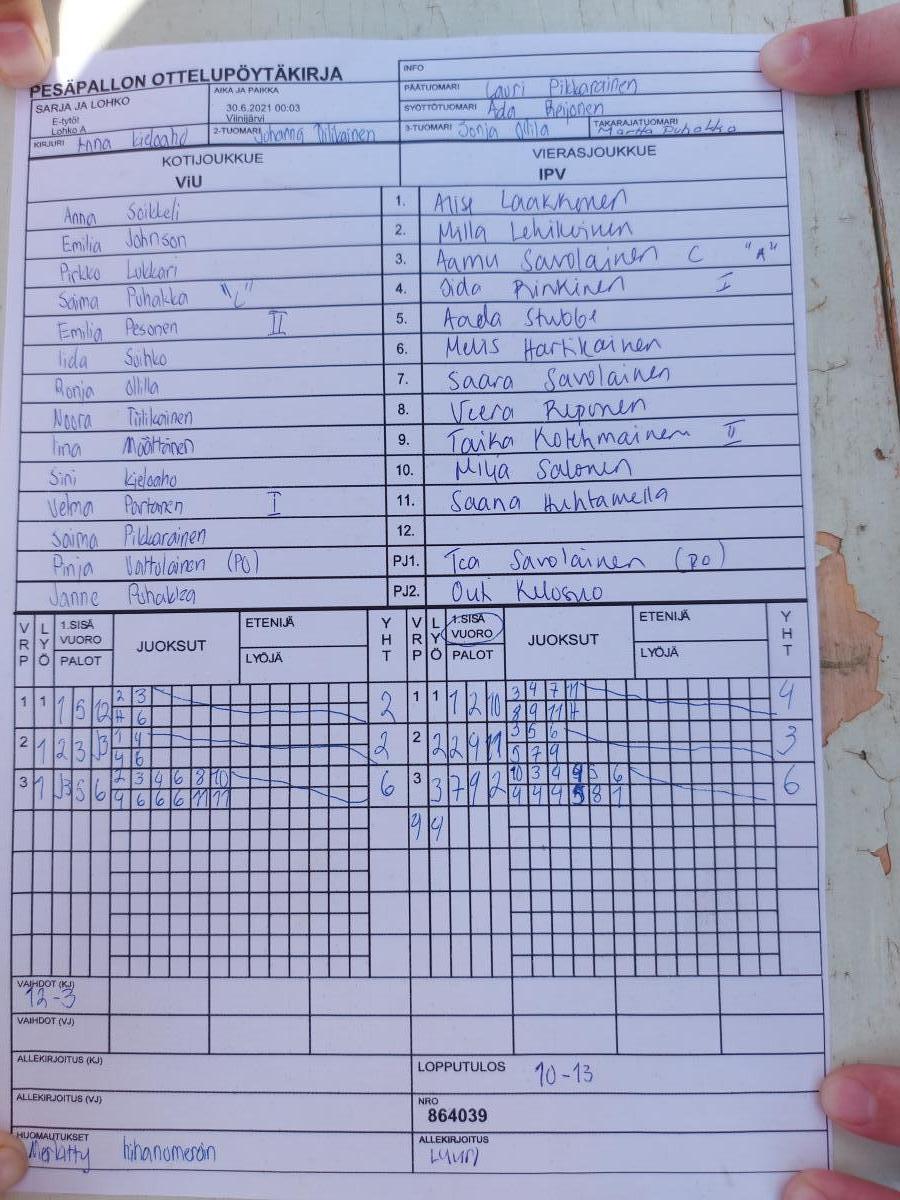 PESÄPALLON OTTELUPÖYTÄKIRJA
INFO
SARJA JA LOHKO
E-tytöt
Lohko A
AIKA JA PAIKKA
30.6.2021 00:03
Viinijärvi
PÄÄTUOMARI Lauri Pikkarainen
SYÖTTÖTUOMARI Ada Reijonen
KIRJURI Anna Kieloaho
2-TUOMARI Johanna Tiilikainen
3-TUOMARI Sonja Ollila
TAKARAJATUOMARI Martta Puhakka
KOTIJOUKKUE
ViU
VIERASJOUKKUE
IPV
Anna Soikkeli 1. Alisa Laakkonen
Emilia Johnson 2. Milla Lehikoinen
Pirkko Lukkari 3. Aamu Savolainen C "A"
Saima Puhakka "C" 4. Iida Rinkinen I
Emilia Pesonen II 5. Aada Stubbe
Iida Suihko 6. Melis Hartikainen
Ronja Ollila 7. Saara Savolainen
Noora Tiilikainen 8. Veera Reponen
Iina Määttänen 9. Taika Kolehmainen II
Sini Kieloaho 10. Milja Salonen
Velma Partanen I 11. Saana Huhtamella
Saima Pikkarainen 12.
Pinja Vattulainen (PO) PJ1. Tea Savolainen (PO)
Janne Puhakka PJ2. Outi
VRP LYÖ 1.SISÄ VUORO PALOT JUOKSUT ETENIJÄ LYÖJÄ YHT VRP LYÖ 1.SISÄ VUORO PALOT JUOKSUT ETENIJÄ LYÖJÄ YHT
1 1 1 5 12 2 3 2 1 1 1 2 10 3 4 7 11 4
4 6 8 9 11 4
2 1 2 3 3 1 4 2 2 2 2 9 11 3 5 6 3
4 6 5 7 9
3 1 3 5 6 2 3 4 6 8 10 6 3 3 7 9 2 10 3 4 9 5 6 6
4 6 6 6 11 11 4 4 4 5 8 1
4 4
VAIHDOT (KJ)
12-3
VAIHDOT (VJ)
ALLEKIRJOITUS (KJ)
LOPPUTULOS 10-13
ALLEKIRJOITUS (VJ)
NRO
864039
HUOMAUTUKSET
Merkatty hihanumeroin
ALLEKIRJOITUS
Lauri